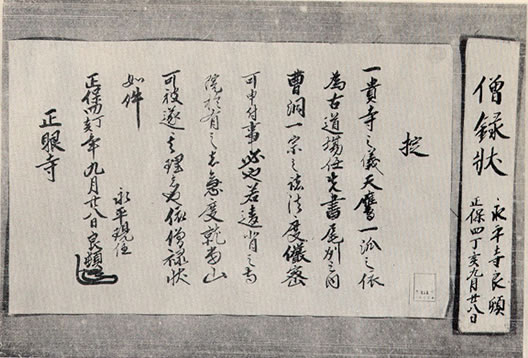 僧録状
永平寺良頓
正保四丁亥九月廿八日
掟
一貴寺之儀天鷹一派之依
為古道場任先書尾州之内
曹洞一宗之諸法度儀密
可申付事必也若違背之寺
院於有之者急度就當山
可被遂其理者也依僧禄状
如件
永平現住
正保四丁亥年九月廿八日良頓
正眼寺